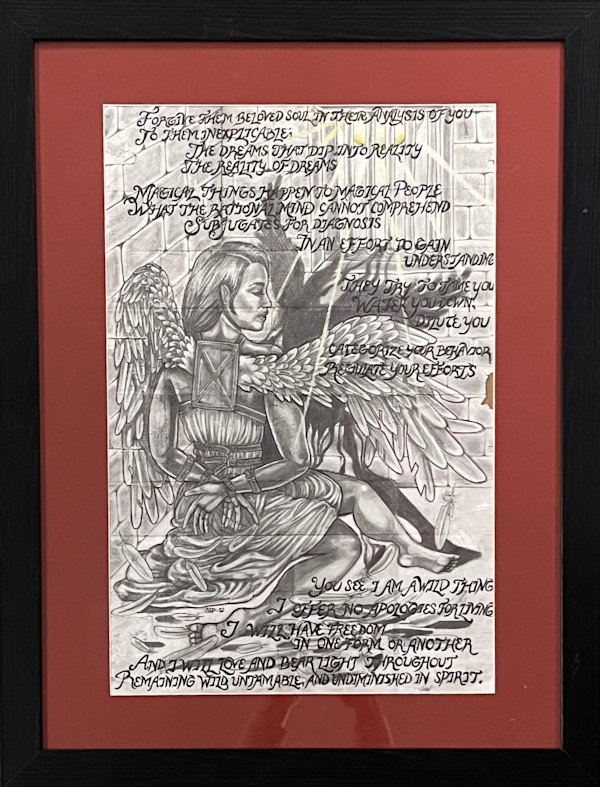 FORGIVE THEM BELOVED SOUL IN THEIR ANALYSIS OF YOU
TO THEM INEXPLICABLE;
THE DREAMS THAT DIP INTO REALITY
THE REALITY OF DREAMS
MAGICAL THINGS HAPPEN TO MAGICAL PEOPLE
WHAT THE RATIONAL MIND CANNOT COMPREHEND
SUBJUGATES FOR DIAGNOSIS
IN AN EFFORT TO GAIN
UNDERSTANDING
THEY TRY TO TAME YOU
WATER YOU DOWN,
DILUTE YOU
CATEGORIZE YOUR BEHAVIOR
REGULATE YOUR EFFORTS
YOU SEE I AM A WILD THING
I OFFER NO APOLOGIES FOR LIVING
I WILL HAVE FREEDOM
IN ONE FORM OR ANOTHER
AND I WILL LOVE AND BEAR LIGHT THROUGHOUT
REMAINING WILD, UNTAMABLE, AND UNDIMINISHED IN SPIRIT.